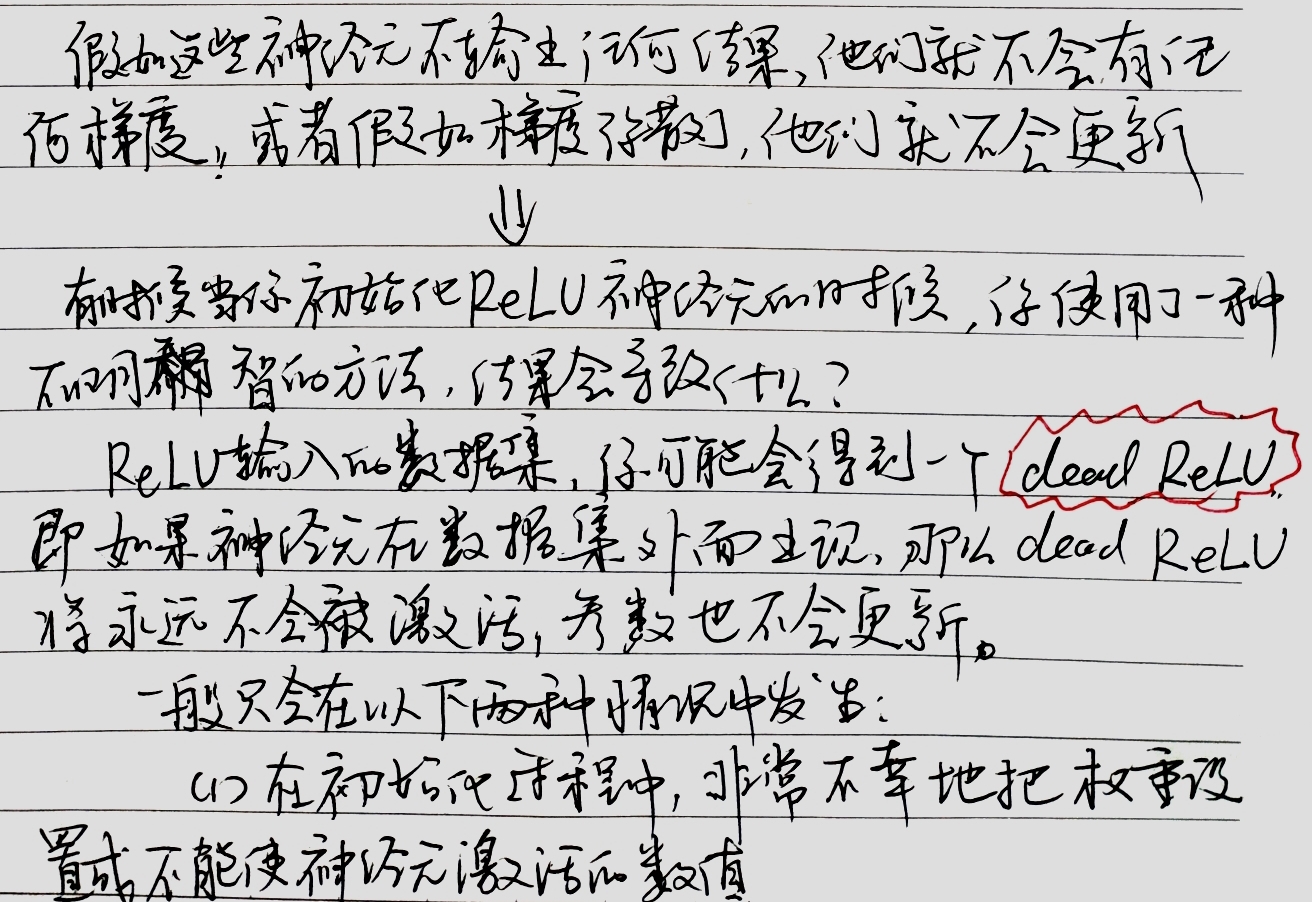 假如这些神经元不输出任何结果,他们就不会有任
何梯度,或者假如梯度弥散了,他们就不会更新
⇓
有时候当你初始化ReLU神经元的时候,你使用了一种
不明智的方法,结果会导致什么?
ReLU输入的数据集,你可能会得到一个dead ReLU,
即如果神经元在数据集外面出现,那么dead ReLU
将永远不会被激活,参数也不会更新。
一般只会在以下两种情况中发生:
(1)在初始化过程中,非常不幸地把权重设
置成不能使神经元激活的数值